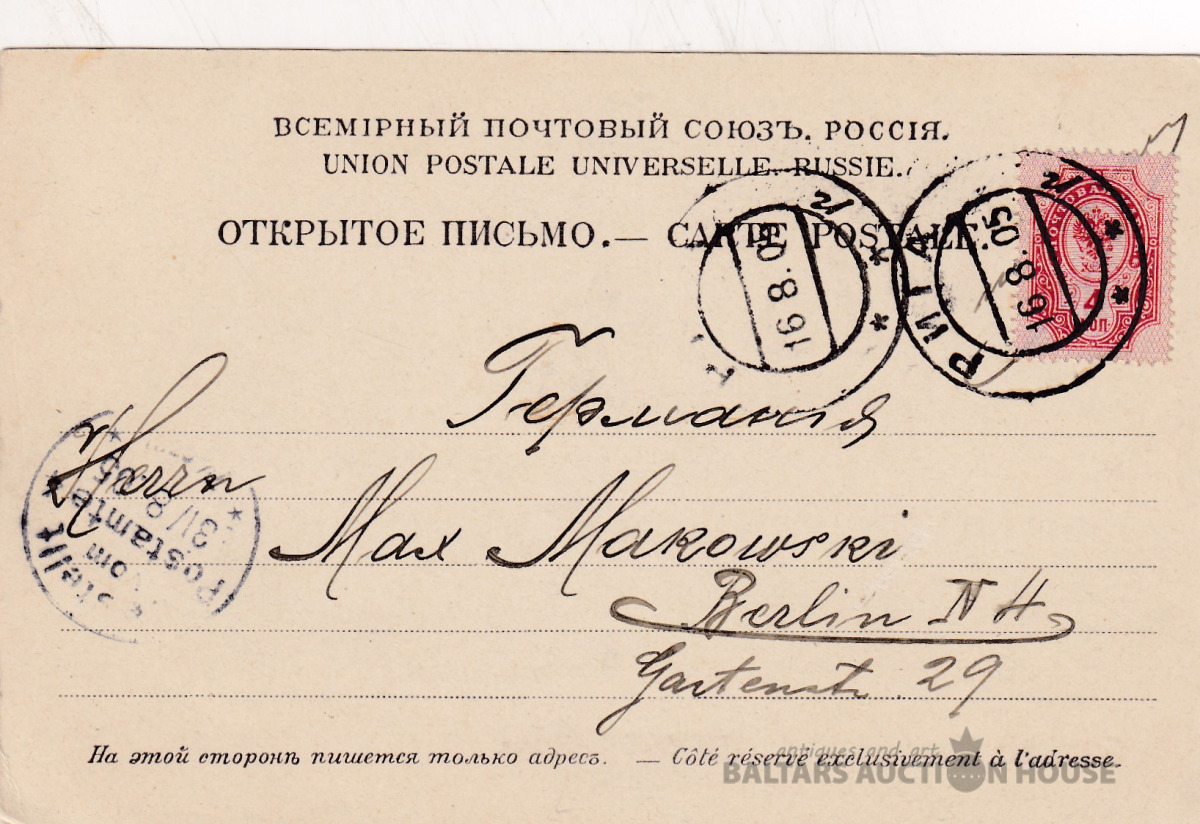 ВСЕМІРНЫЙ ПОЧТОВЫЙ СОЮЗЪ. РОССІЯ.
UNION POSTALE UNIVERSELLE. RUSSIE.
ОТКРЫТОЕ ПИСЬМО. — CARTE POSTALE.
16.8.05
РИГА
16.8.05
ПОЧТОВАЯ
4
КОП.
Германія
Herrn
Max Makowski
Berlin N 4
Gartenstr. 29
vom
Postamte
31/8 05
На этой сторонѣ пишется только адресъ. — Côté réservé exclusivement à l'adresse.
antiques and art
BALTARS AUCTION HOUSE